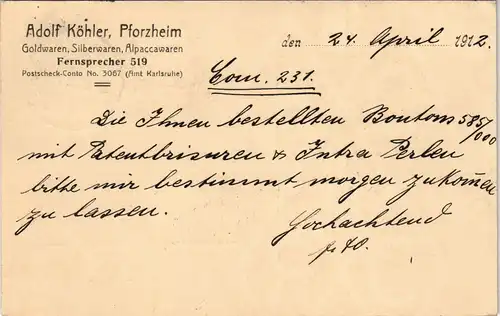 Adolf Köhler, Pforzheim
Goldwaren, Silberwaren, Alpaccawaren
Fernsprecher 519
Postscheck-Conto No. 3067 (Amt Karlsruhe)
den 24 April 1912.
Com. 231.
Die Ihnen bestellten Boutons 585/000
mit Patentbrisuren & Intra Perlen
bitte mir bestimmt morgen zukom̄en
zu lassen.
Hochachtend